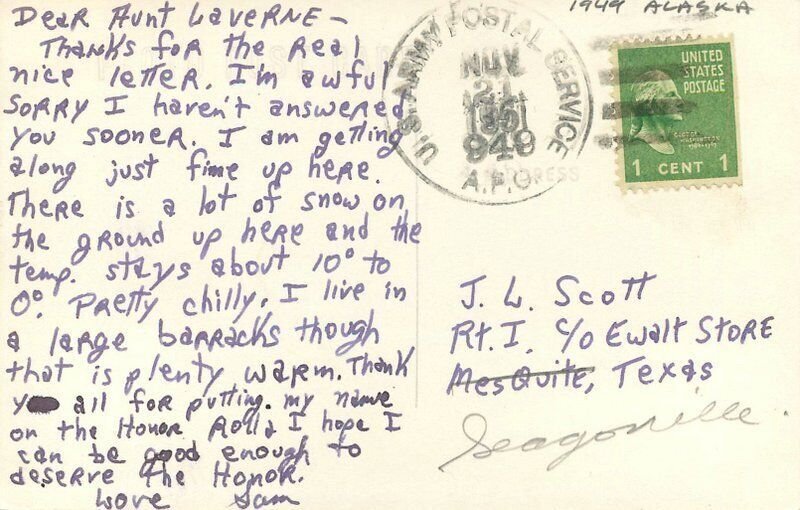 1949 ALASKA
Dear Aunt Laverne –
Thanks for the real
nice letter. I'm awful
sorry I haven't answered
you sooner. I am getting
along just fine up here.
There is a lot of snow on
the ground up here and the
temp. stays about 10° to
0°. Pretty chilly. I live in
a large barracks though
that is plenty warm. Thank
you all for putting my name
on the Honor Roll. I hope I
can be good enough to
deserve the Honor.
Love Sam
U.S. ARMY POSTAL SERVICE
NOV
21
1949
A.P.O.
949
UNITED
STATES
POSTAGE
GEORGE
WASHINGTON
1 CENT 1
J. L. Scott
Rt. I, c/o Ewalt Store
Mesquite, Texas
Seagoville.